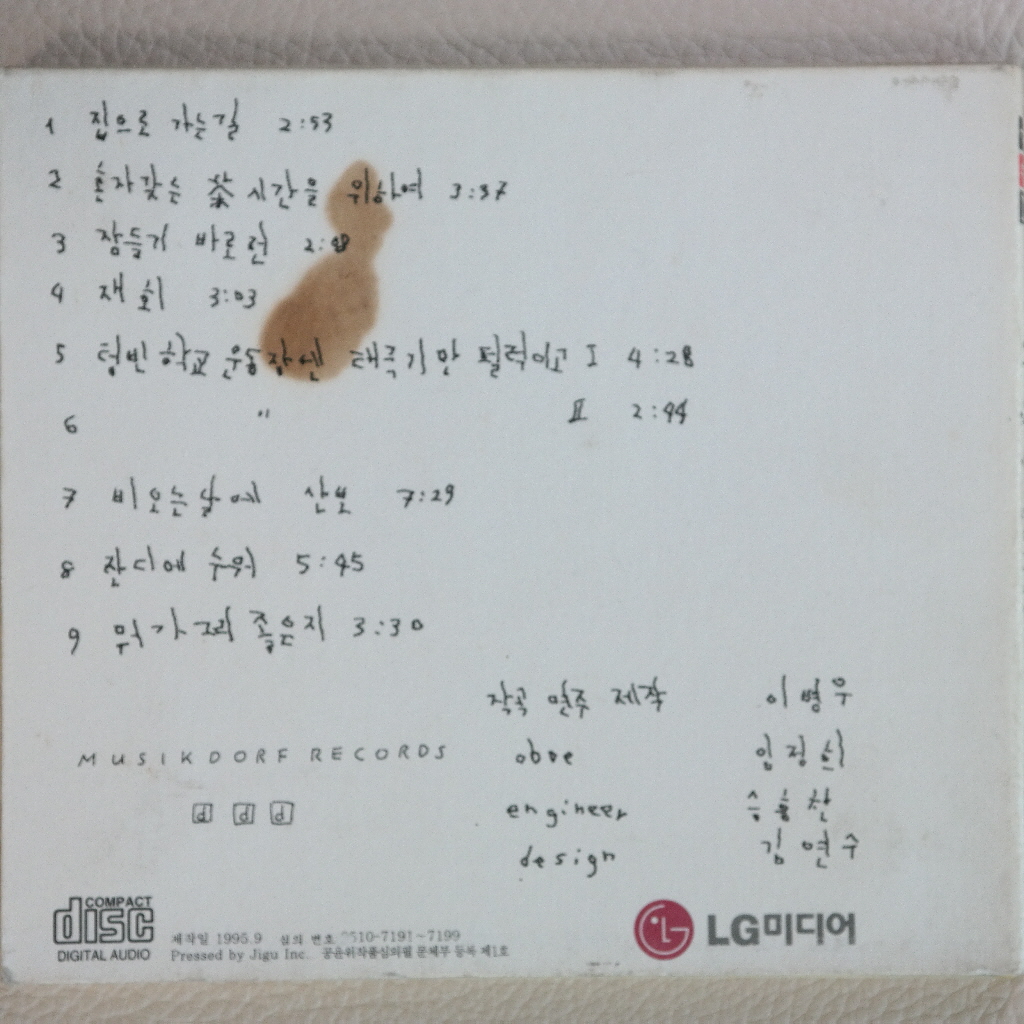 1 집으로 가는길 2:53
2 혼자갖는 茶 시간을 위하여 3:37
3 잠들기 바로전 2:48
4 재회 3:03
5 텅빈 학교 운동장엔 태극기만 펄럭이고 I 4:28
6 " II 2:44
7 비오는날에 산보 7:29
8 잔디에 누워 5:45
9 뭐가 그리 좋은지 3:30
작곡 연주 제작 이병우
oboe 임정희
engineer 송홍찬
design 김연수
MUSIKDORF RECORDS
d d d
COMPACT
disc
DIGITAL AUDIO
제작일 1995.9 심의 번호 9510-7191~7199
Pressed by Jigu Inc. 공윤위작품심의필 문체부 등록 제1호
LG미디어